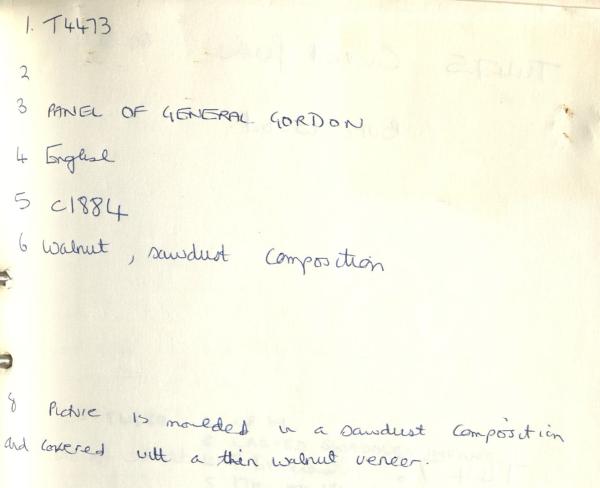 1. T4473
2
3 PANEL OF GENERAL GORDON
4 English
5 c1884
6 Walnut, sawdust composition
8 Picture is moulded in a sawdust composition
and covered with a thin walnut veneer.